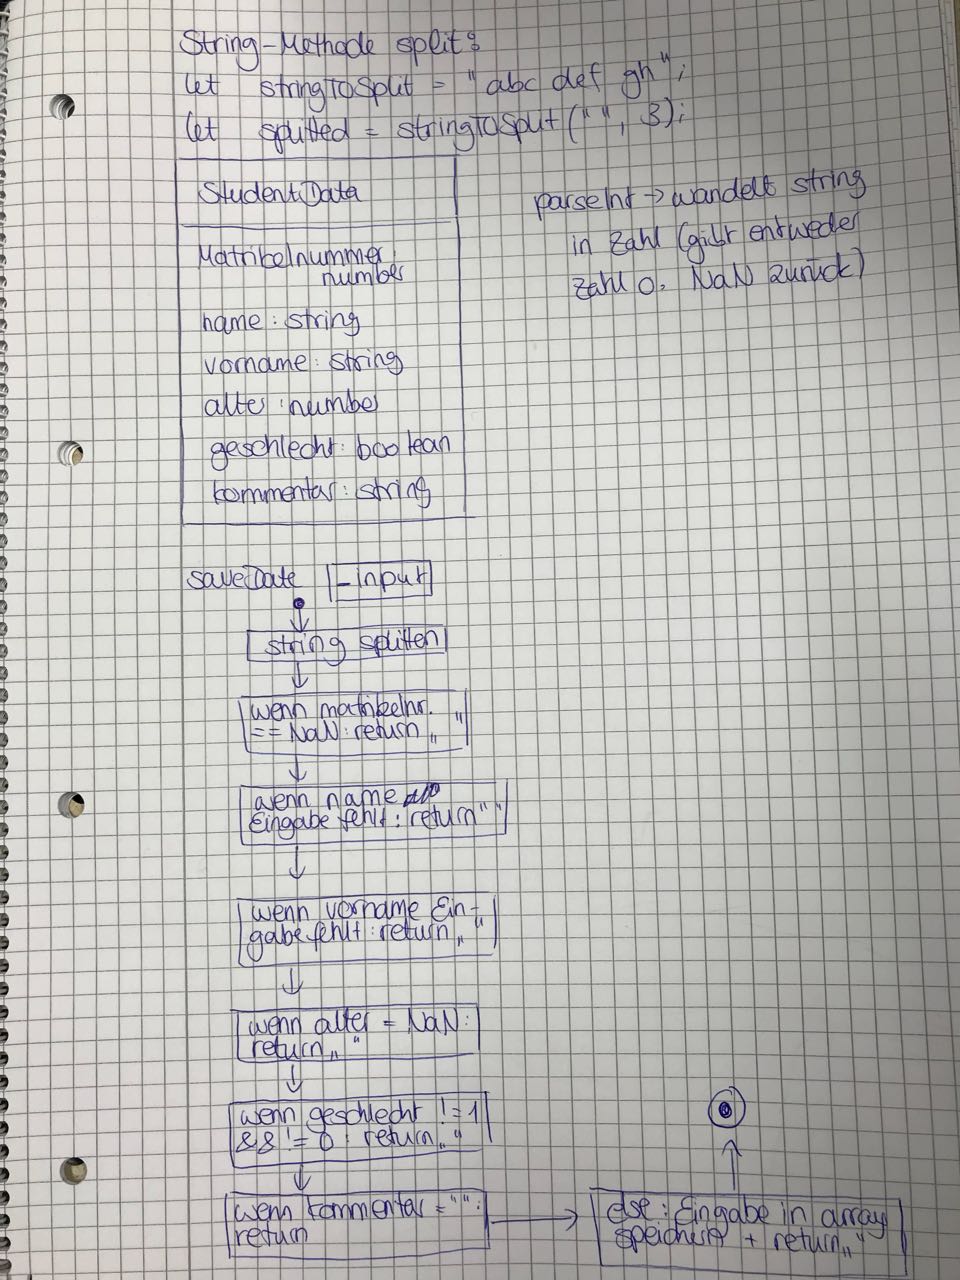 String-Methode split:
let stringToSplit = "abc def gh";
let splitted = stringToSplit(" ", 3);
StudentData
Matrikelnummer
number
name: string
vorname: string
alter: number
geschlecht: boolean
kommentar: string
parseInt → wandelt string
in Zahl (gibt entweder
Zahl o. NaN zurück)
saveDate -input
string splitten
wenn matrikelnr.
== NaN: return „ "
wenn name
Eingabe fehlt: return " "
wenn vorname Ein-
gabe fehlt: return „ "
wenn alter = NaN:
return „ "
wenn geschlecht != 1
&& != 0: return „ "
wenn kommentar = "":
return
else: Eingabe in array
+ return „ "